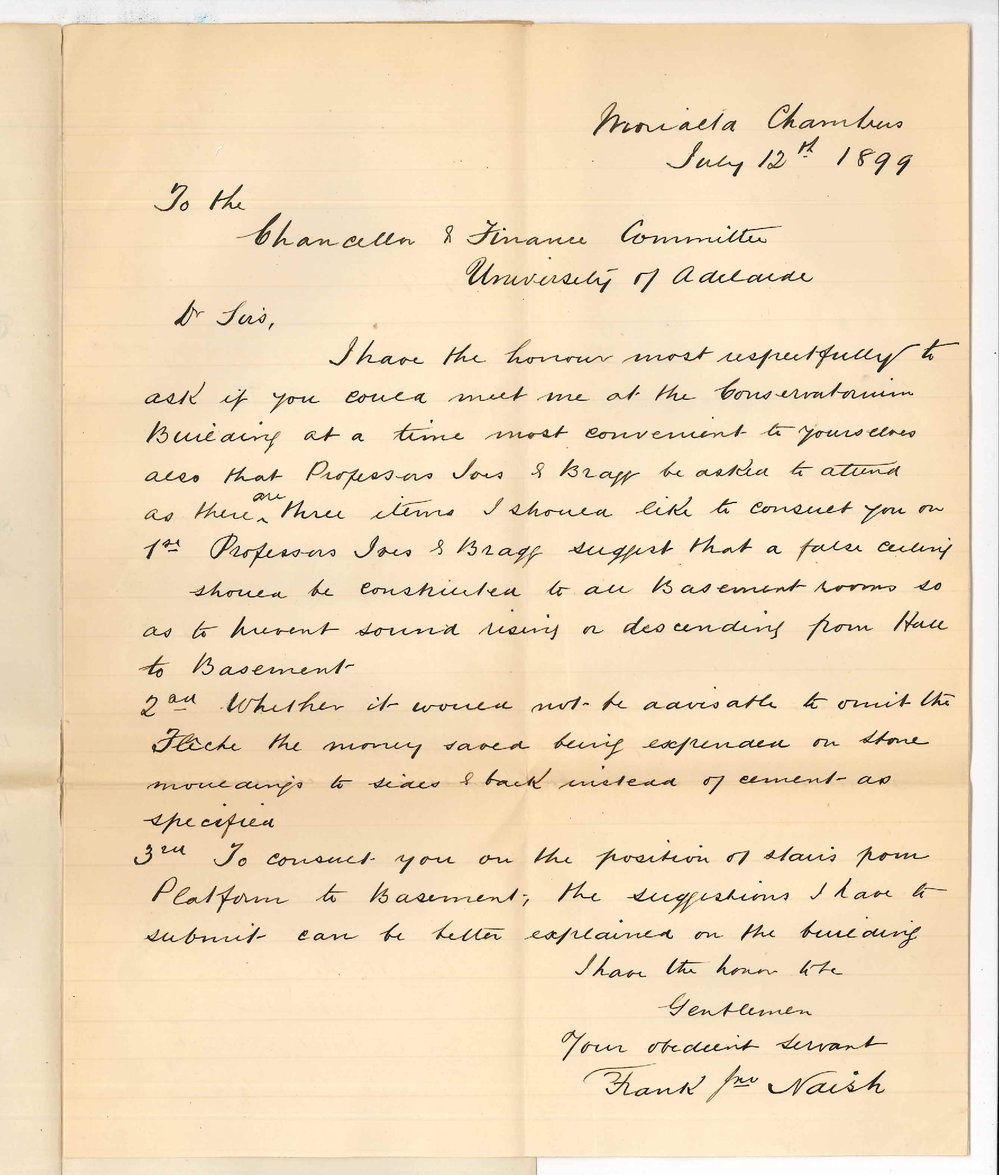 Morialta Chambers
July 12th 1899
To the
Chancellor & Finance Committee
University of Adelaide
Dr Sirs,
I have the honour most respectfully to
ask if you could meet me at the Conservatorium
Building at a time most convenient to yourselves
also that Professors Ives & Bragg be asked to attend
as there are three items I should like to consult you on
1st Professors Ives & Bragg suggest that a false ceiling
should be constructed to all Basement rooms so
as to prevent sound rising or descending from Hall
to Basement
2nd Whether it would not be advisable to omit the
Fléche the money saved being expended on stone
mouldings to sides & back instead of cement as
specified
3rd To consult you on the position of stairs from
Platform to Basement, the suggestions I have to
submit can be better explained on the building
I have the honor to be
Gentlemen
Your obedient servant
Frank Jno Naish